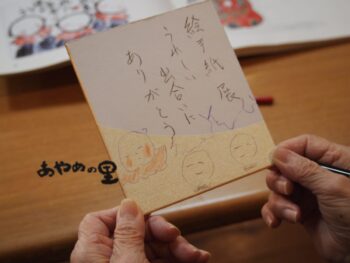 絵手紙展
うれしい出会いに
ありがとう
あやめの里